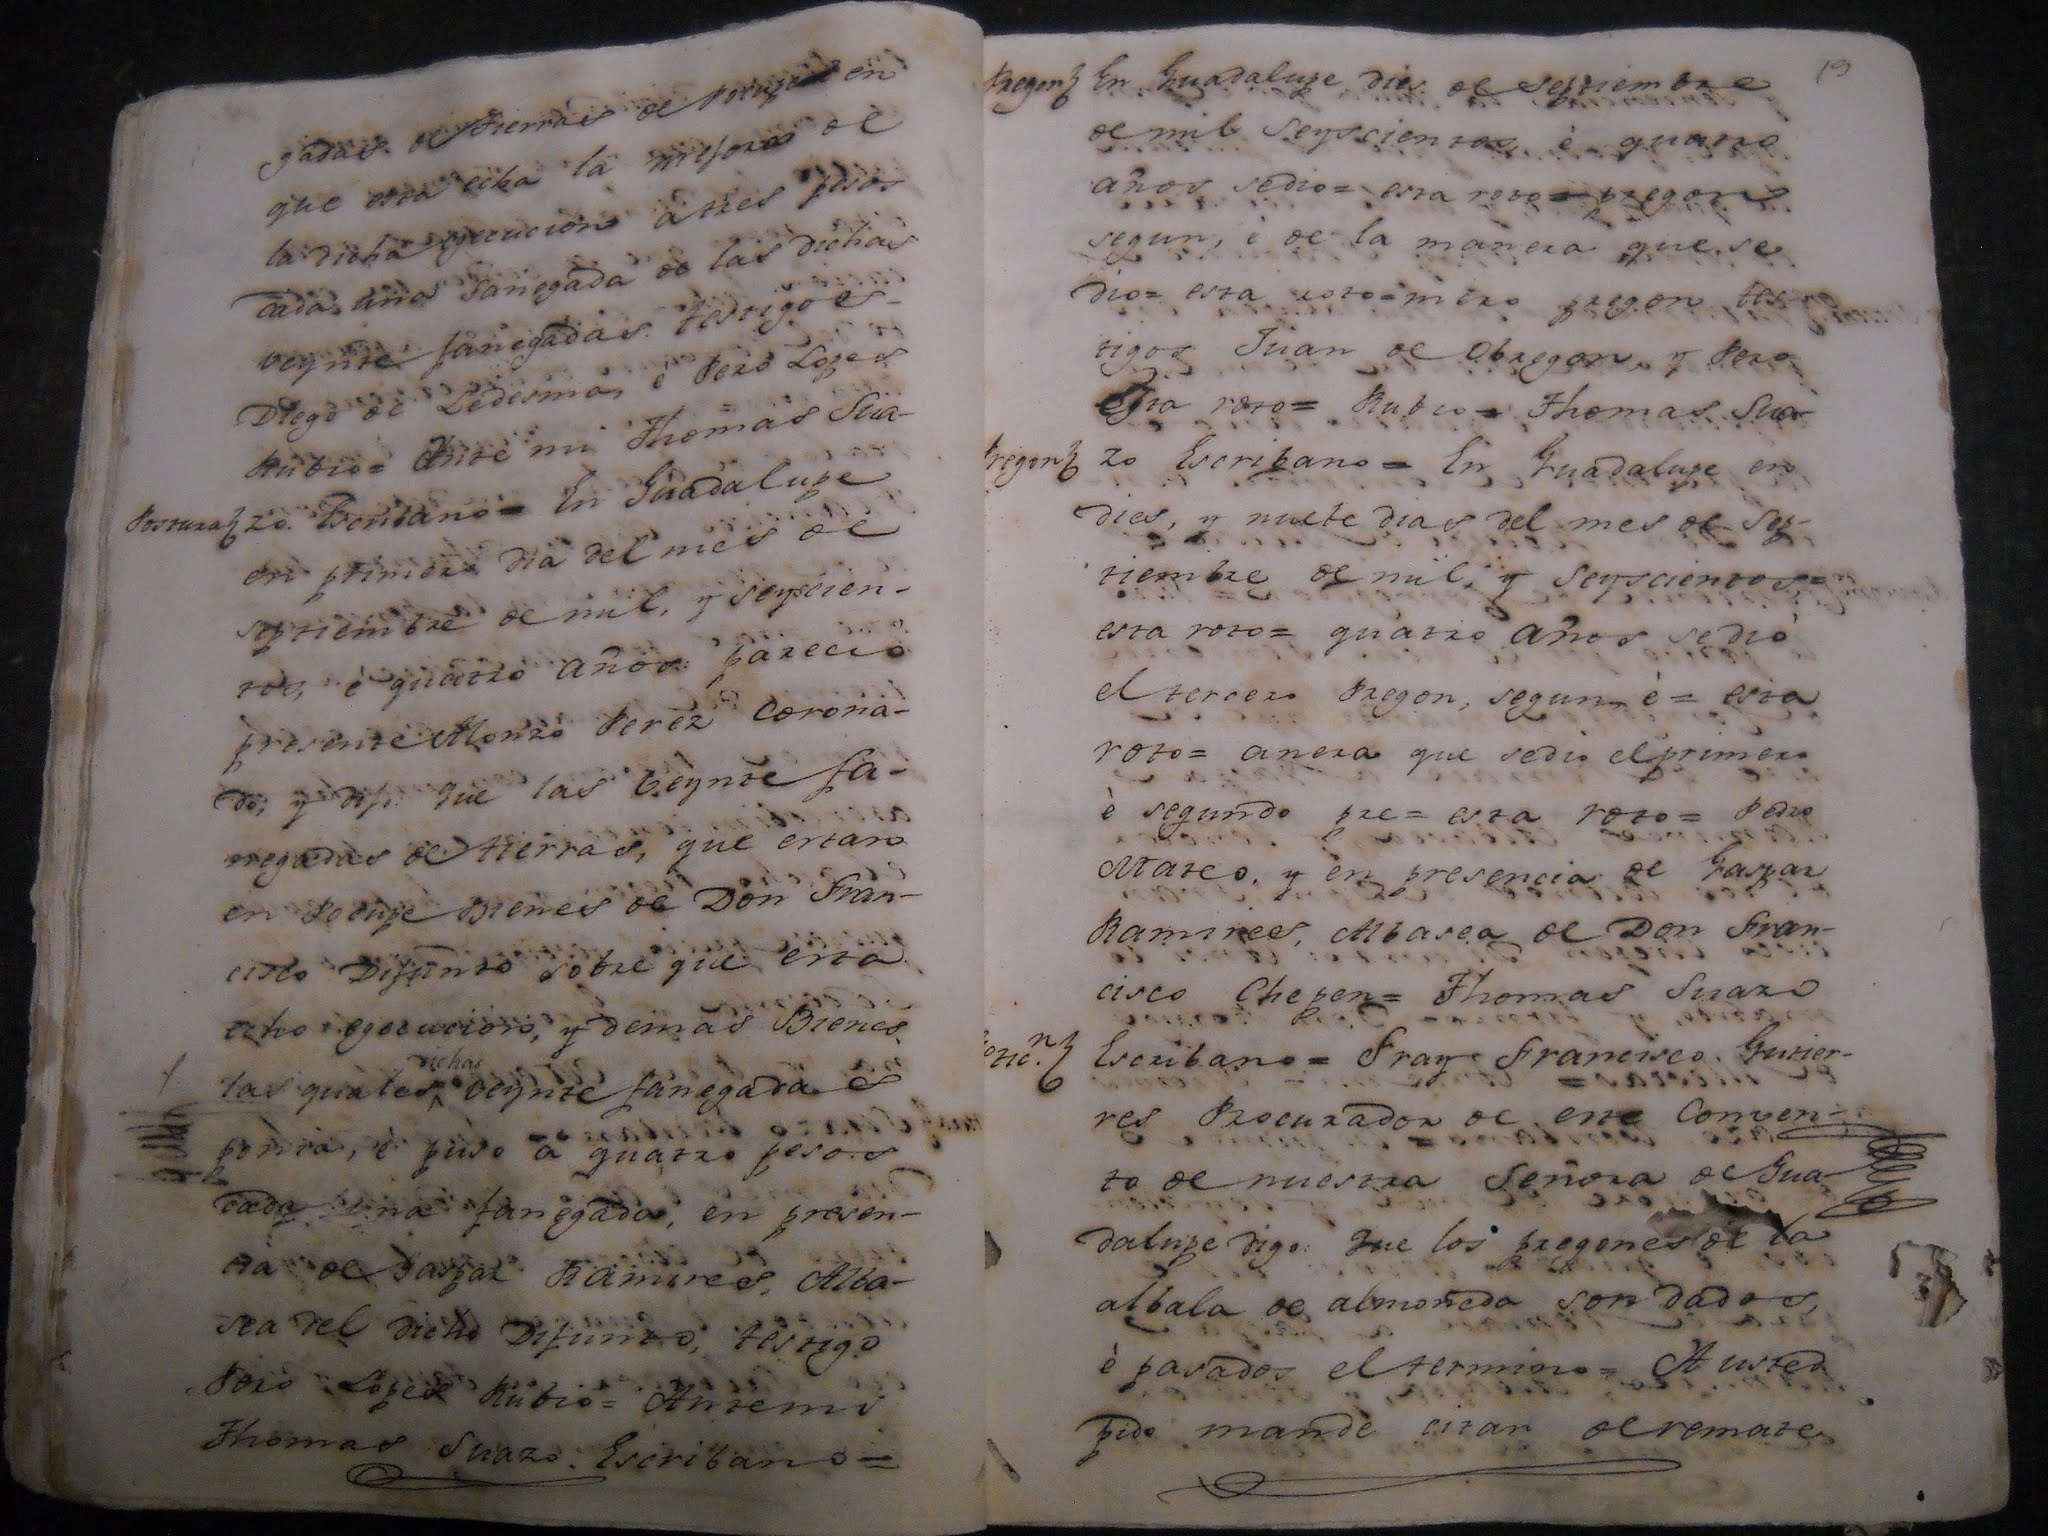 gadas de tierras de Pocupe en
que esta echa la mejora de
la dicha egecucion a tres pesos
cada una fanegada de las dichas
veynte fanegadas. testigos
Diego de Ledesma, è Pero Lopes
Rubio= Ante mi Thomas Sua-
Postura zo. Escribano= En Guadalupe
en primero dia del mes de
septiembre de mil, y seyscien-
tos, è quatro años: parecio
presente Alonzo Perez Corona-
do, y dijo que las veynte fa-
negadas de tierras, que estan
en Pocupe Bienes de Don Fran-
cisco Difunto sobre que esta
echo egecucion, y demas Bienes,
las quales dichas veynte fanegadas
ponia, è puso a quatro pesos
cada una fanegada, en presen-
cia de Gaspar Ramires, Alba-
sea del dicho Difunto, testigo
Pero Lopez Rubio= Antemi
Thomas Suazo. Escribano=
19
Pregon En Guadalupe dies de septiembre
de mil seyscientos, è quatro
años sedio= esta roto= pregon
segun, è de la manera que se
dio= esta roto= mero pregon tes-
tigos Juan de Obregon, y Pero
Esta roto= Rubio= Thomas Sua-
Pregon zo Escribano= En Guadalupe en
dies, y nuebe dias del mes de Sep-
tiembre de mil, y seyscientos=
esta roto= quatro años sedió
el tercero Pregon, segun, è= esta
roto= anera que sedio el primero
è segundo pre= esta roto= Pedro
Mateo, y en presencia de Gaspar
Ramires, Albasea de Don Fran-
cisco Chepen= Thomas Suazo
Escribano= Fray Francisco Gutier-
res Procurador de este Conven-
to de nuestra Señora de Gua-
dalupe digo: Que los pregones de la
albala de almoneda son dados,
è pasados el termino= A usted
pido mande citar de remate